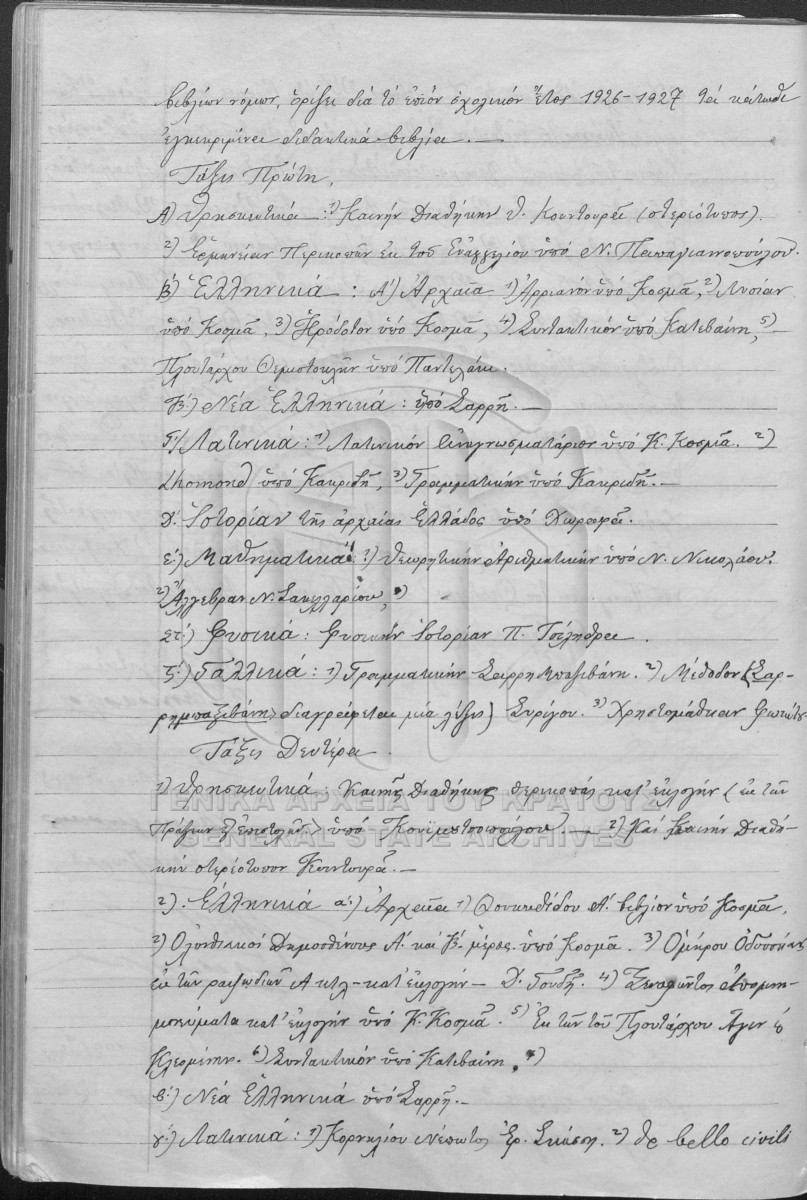 βιβλίων νόμον, ὁρίζει διά τό ἐπιόν σχολικόν ἔτος 1926-1927 τά κάτωθι
ἐγκεκριμένα διδακτικά βιβλία.—
Τάξις Πρώτη.
Α) Θρησκευτικά : 1) Καινήν Διαθήκην Θ. Κουντουρᾶ (στερεότυπος).
2) Ἑρμηνείαν Περικοπῶν ἐκ τοῦ Εὐαγγελίου ὑπό Ν. Παπαγιαννοπούλου.
Β) Ἑλληνικά : Α΄) Ἀρχαῖα 1) Ἀρριανόν ὑπό Κοσμᾶ, 2) Λυσίαν
ὑπό Κοσμᾶ, 3) Ἡρόδοτον ὑπό Κοσμᾶ, 4) Συντακτικόν ὑπό Κατεβαίνη, 5)
Πλουτάρχου Θεμιστοκλῆν ὑπό Παντελάκη.
Β΄) Νέα Ἑλληνικά : ὑπό Σαρρῆ.—
Γ΄) Λατινικά : 1) Λατινικόν Ἀναγνωσματάριον ὑπό Κ. Κοσμᾶ. 2)
Lhomond ὑπό Κακριδῆ, 3) Γραμματικήν ὑπό Κακριδῆ.—
Δ΄ Ἱστορίαν τῆς ἀρχαίας Ἑλλάδος ὑπό Χωραφᾶ.
ε΄) Μαθηματικά : 1) Θεωρητικήν Ἀριθμητικήν ὑπό Ν. Νικολάου.
2) Ἄλγεβραν Ν. Σακελλαρίου,
Στ΄) Φυσικά : Φυσικήν Ἱστορίαν Π. Τσίληθρα.
ζ΄) Γαλλικά : 1) Γραμματικήν Σαρρῆ Μπαξεβάνη. 2) Μέθοδον (Σαρ-
ρῆ μπαξεβάνη διαγράφεται μία λέξις) Συρίγου. 3) Χρηστομάθειαν
Τάξις Δευτέρα.
1) Θρησκευτικά : Καινῆς Διαθήκης περικοπάς κατ' ἐκλογήν (ἐκ τῶν
Πράξεων ἐπιστολῶν) ὑπό — 2) Καί Καινήν Διαθή-
κην στερεότυπον Κουντουρᾶ.—
2). Ἑλληνικά α΄) Ἀρχαῖα 1) Θουκυδίδου Α΄. βιβλίον ὑπό Κοσμᾶ.
2) Ὀλυνθιακοί Δημοσθένους Α΄. καί Β΄. μέρος. ὑπό Κοσμᾶ. 3) Ὁμήρου Ὀδυσσείας
ἐκ τῶν ραψωδιῶν Α κτλ - κατ' ἐκλογήν — Δ. Γουδῆ. 4) Ξενοφῶντος Ἀπομνη-
μονεύματα κατ' ἐκλογήν ὑπό Κ. Κοσμᾶ. 5) Ἐκ τῶν τοῦ Πλουτάρχου Ἆγιν
Κλεομένην. 6) Συντακτικόν ὑπό Κατεβαίνη.
β΄) Νέα Ἑλληνικά ὑπό Σαρρῆ.—
γ΄) Λατινικά : 1) Κορνηλίου Νέπωτος Ἐρ. Σκάσση. 2) De bello civili
ΓΕΝΙΚΑ ΑΡΧΕΙΑ ΤΟΥ ΚΡΑΤΟΥΣ
GENERAL STATE ARCHIVES